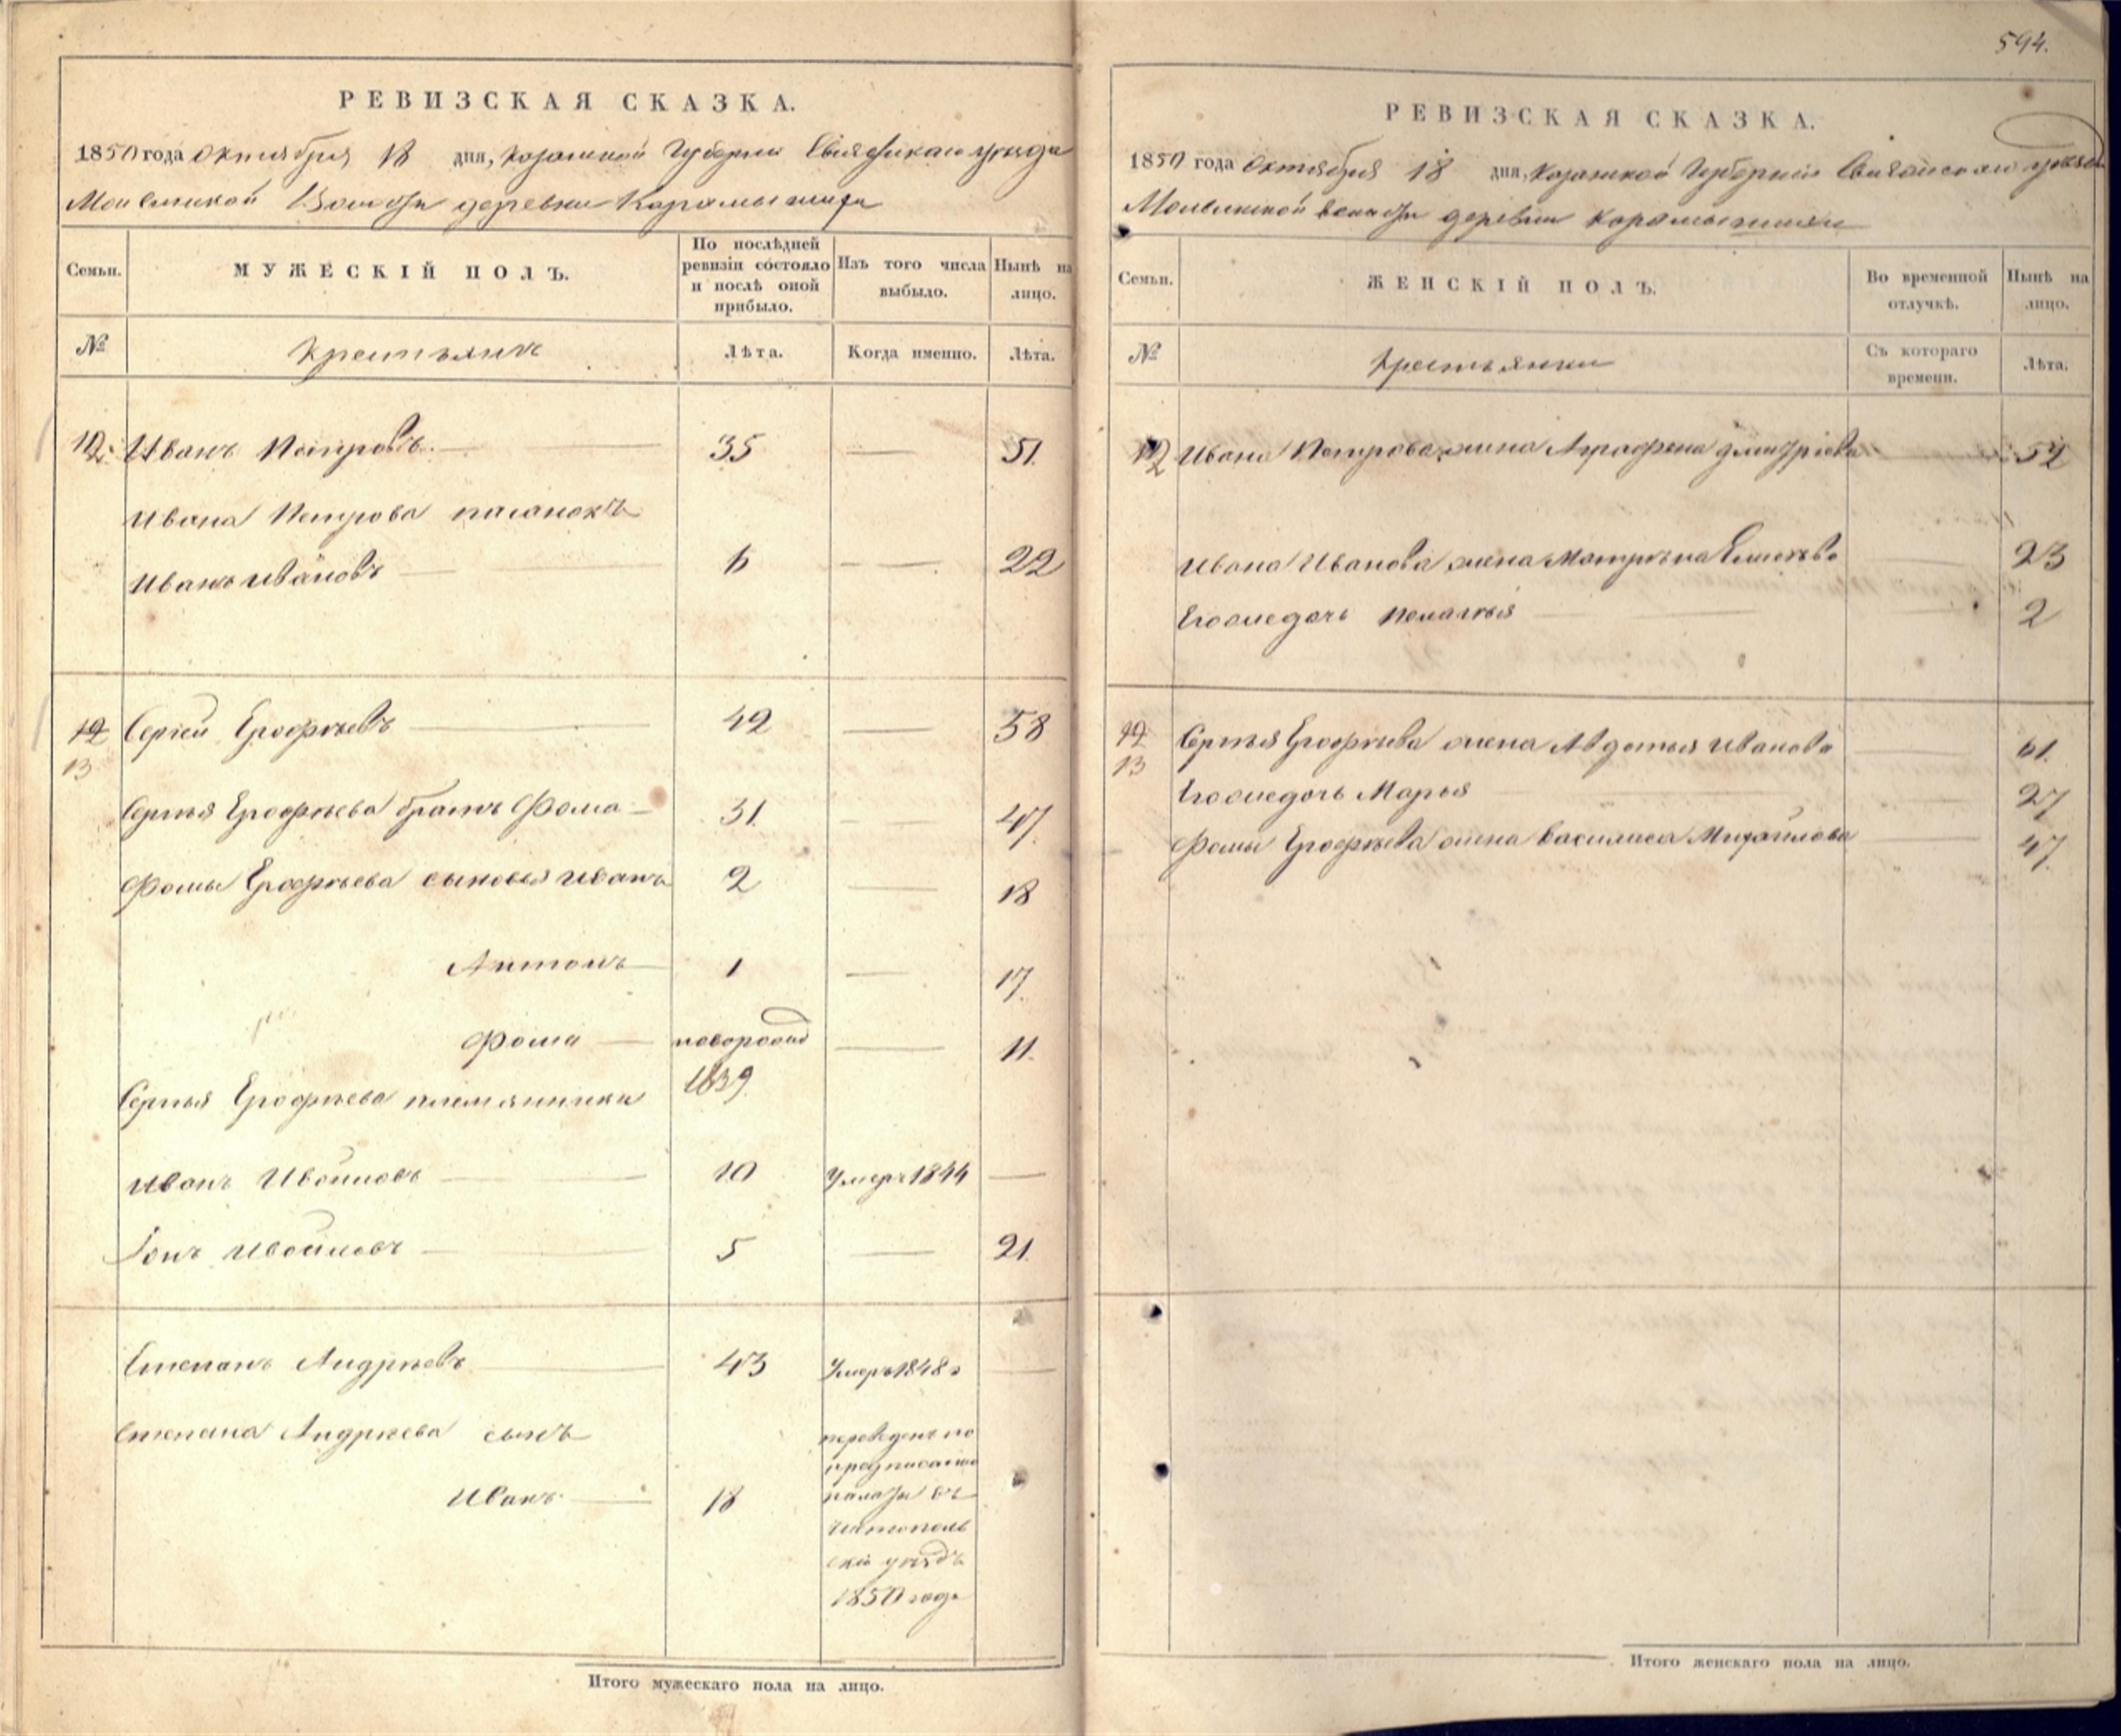 594.
РЕВИЗСКАЯ СКАЗКА.
1850 года Октября 18 дня, Казанской Губернии Свіяжскаго уѣзда
Волости деревни Карамышихи
Семьи.
МУЖЕСКІЙ ПОЛЪ.
По послѣдней ревизіи состояло и послѣ оной прибыло.
Изъ того числа выбыло.
Нынѣ на лицо.
№
Крестьяне
Лѣта.
Когда именно.
Лѣта.
12. Иванъ Петровъ. 35 — 51.
Ивана Петрова пасынокъ
Иванъ Ивановъ 6 — 22
12 Сергей Ерофѣевъ 42 — 58
13
Сергѣя Ерофѣева братъ Фома 31. — 47.
Фомы Ерофѣева сыновья Иванъ 2 — 18
Антонъ 1 — 17.
Фома новорожд — 11.
1839
Сергѣя Ерофѣева племянники
Иванъ 10 Умеръ 1844 —
5 — 21.
Степанъ Андрѣевъ 43 Умеръ 1848 г —
Степана Андрѣева сынъ
Иванъ 18
переведенъ по
предписанію
палаты въ
Чистополь
скій уѣздъ
1850 года
Итого мужескаго пола на лицо.
РЕВИЗСКАЯ СКАЗКА.
1850 года Октября 18 дня, Казанской Губерніи Свіяжскаго уѣзда
волости деревни Карамышихи
Семьи.
ЖЕНСКІЙ ПОЛЪ.
Во временной отлучкѣ.
Нынѣ на лицо.
№
Крестьянки
Съ котораго времени.
Лѣта.
12 Ивана Петрова жена Аграфена Дмитріева 52
Ивана Иванова жена Матрена 23
Его же дочь Пелагѣя 2
12 Сергѣя Ерофѣева жена Авдотья Иванова 61.
13
Его же дочь Марья 27
Фомы Ерофѣева жена Василиса Михайлова 47.
Итого женскаго пола на лицо.